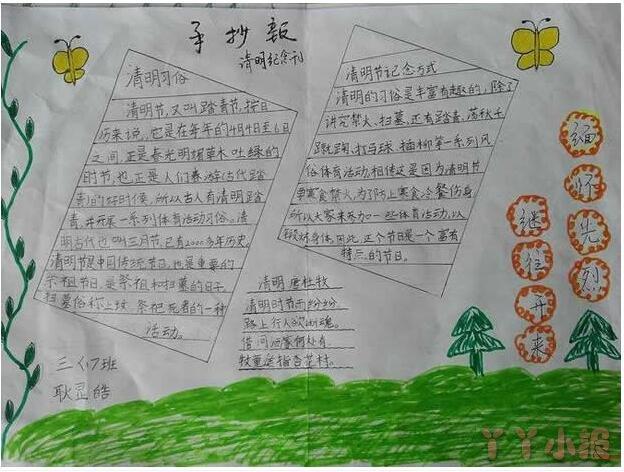 手抄报
清明纪念刊
清明习俗
清明节,又叫踏青节,按日
历来说,它是在每年的4月4日至6日
之间,正是春光明媚草木吐绿的
的时节,也正是人们春游古代踏
青的好时侯,所以古人有清明踏
青,并开展一系列体育活动习俗。清
明古代也叫三月节,已有2000多年历史。
清明节是中国传统节日,也是重要的
祭祖节日,是祭祖和扫墓的日子。
扫墓俗称上坟,祭祀死者的一种
活动。
三(7)班
耿显皓
清明节记念方式
清明的习俗是丰富有趣的,除了
讲究禁火、扫墓,还有踏青、荡秋千
蹴鞠、打马球、插柳等一系列风
俗体育活动,相传这是因为清明节
要寒食禁火,为了防止寒食冷餐伤身,
所以大家来参加一些体育活动,以
锻炼身体,因此,这个节日是一个富有
特点的节日。
清明 唐杜牧
清明时节雨纷纷
路上行人欲断魂。
借问酒家何处有
牧童遥指杏花村。
缅怀先烈
继往开来
丫丫小报